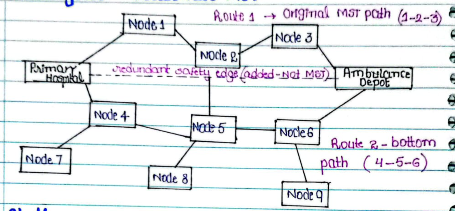 Route 1 → Original MST path (1-2-3)
Node 1
Node 2
Node 3
Primary Hospital
redundant safety edge (added-Not MST)
Ambulance Depot
Node 4
Node 5
Node 6
Route 2 - bottom path (4-5-6)
Node 7
Node 8
Node 9